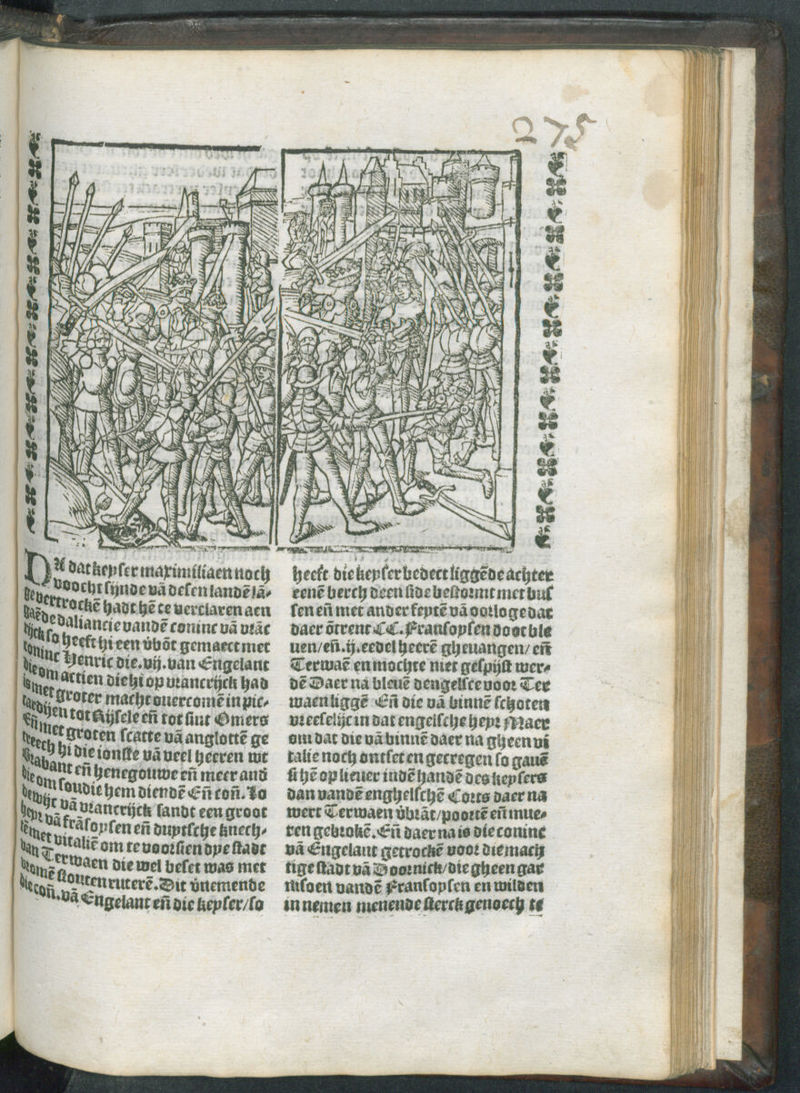 275
NU dat keyser maximiliaen noch
voocht sijnde vā desen landē lā-
ge vertrockē hadt hē te verclaren aen
gaēde daliancie vandē coninc vā vrāc
rijck so heeft hi een v̄bōt gemaect met
coninc Henric die .vij. van Engelant
die om actien die hi op vrancrijck had
is met groter macht overcomē in pic-
cardijen tot Rijsele eñ tot sint Omers
Eñ met groten scatte vā anglottē ge
creech hi die ionste vā veel heeren wt
Brabant eñ henegouwe eñ meer and
die om soudie hem diendē Eñ coñ. Lo
dewijc vā vrancrijck sandt een groot
heyr vā frāsoysen eñ duytsche knech-
tē met vitaliē om te voorsien dye stadt
van Terwaen die wel beset was met
vromē stouten ruterē. Dit v̄nemende
die coñ. vā Engelant eñ die keyser/so
heeft die keyser bedect liggēde achter
eenē berch deen side bestormt met bus
sen eñ met ander feytē vā oorloge dat
daer ōtrent CC. Fransoysen doot ble
uen/eñ .ij. eedel heerē gheuangen/ eñ
Terwaē en mochte niet gespijst wer-
dē Daer na bleuē dengelsce voor Ter
waen liggē Eñ die vā binnē schoten
vreeselijc in dat engelsche heyr Maer
om dat die vā binnē daer na gheen vi
talie noch ontset en gecregen so gauē
si hē op lieuer indē handē des keysers
dan vandē enghelschē Corts daer na
wert Terwaen v̄brāt/poortē eñ mue-
ren gebrokē. Eñ daer na is die coninc
vā Engelant getrockē voor die mach
tige stadt vā Doornick/die gheen gar
nisoen vandē Fransoysen en wilden
in nemen menende sterck genoech te